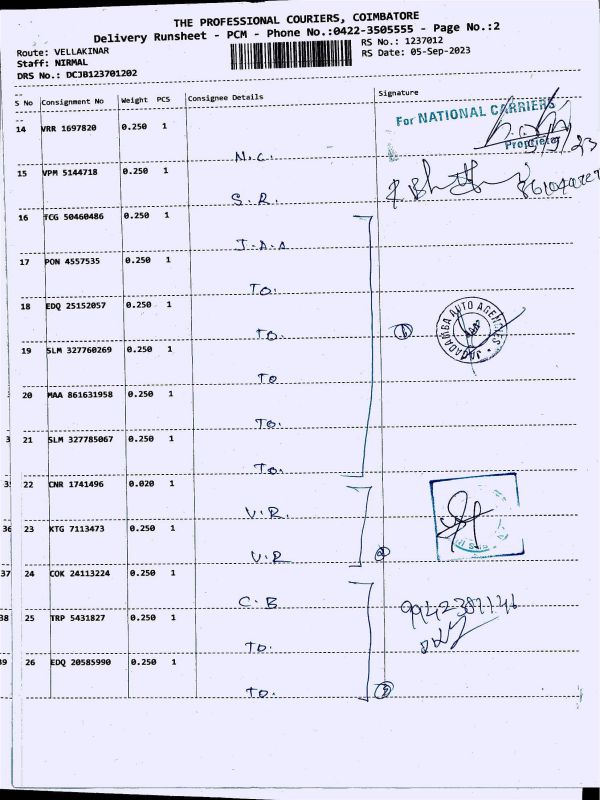 THE PROFESSIONAL COURIERS, COIMBATORE
Delivery Runsheet - PCM - Phone No.:0422-3505555 - Page No.:2
Route: VELLAKINAR
RS No.: 1237012
Staff: NIRMAL
RS Date: 05-Sep-2023
DRS No.: DCJB123701202
S No Consignment No Weight PCS Consignee Details Signature
For NATIONAL CARRIERS
14 VRR 1697820 0.250 1
Proprietor
N.C.
15 VPM 5144718 0.250 1
S.R.
16 TCG 50460486 0.250 1
J.A.A
17 PON 4557535 0.250 1
TO.
18 EDQ 25152057 0.250 1
TO.
JAGADAMBA AUTO AGENCIES
19 SLM 327760269 0.250 1
TO
20 MAA 861631958 0.250 1
TO.
21 SLM 327785067 0.250 1
TO.
22 CNR 1741496 0.020 1
V.R.
36 23 KTG 7113473 0.250 1
V.R
2
37 24 COK 24113224 0.250 1
C.B
38 25 TRP 5431827 0.250 1
TO.
39 26 EDQ 20585990 0.250 1
TO.
3